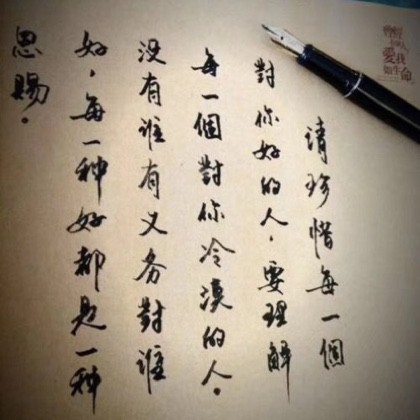 请珍惜每一個
對你好的人，要理解
每一個對你冷漠的人。
没有谁有义务對谁
好，每一种好都是一种
恩赐。